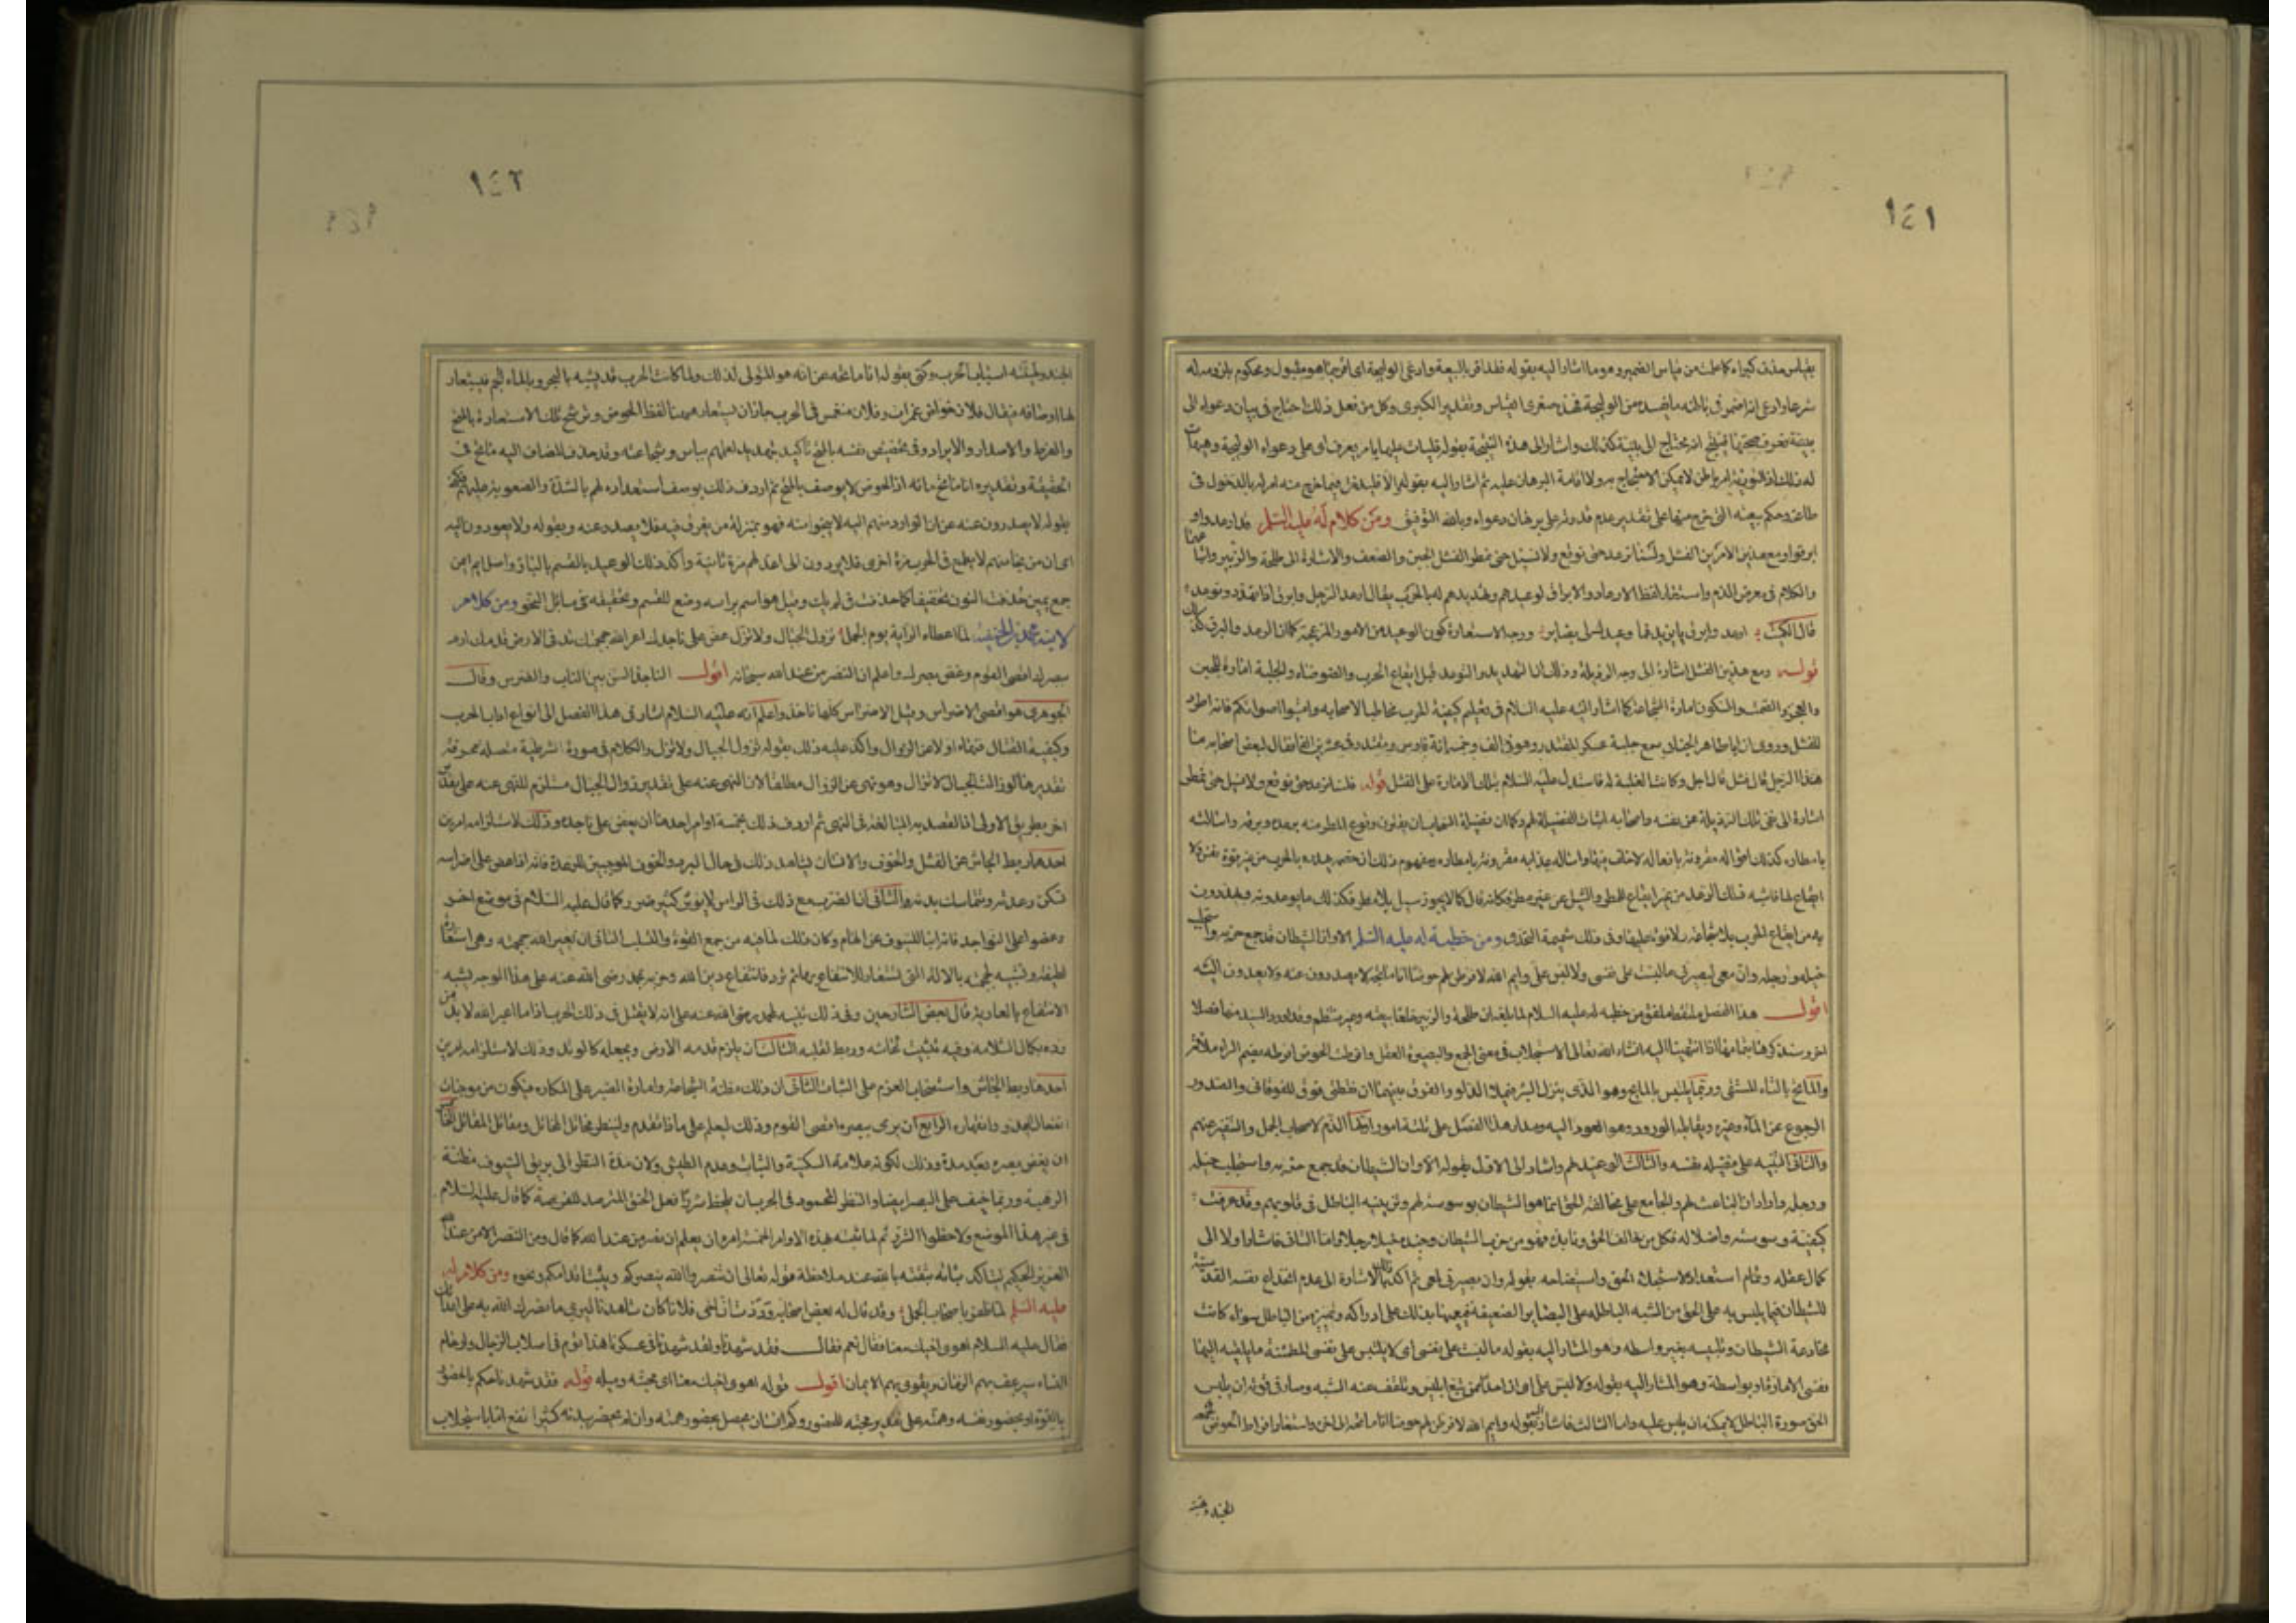 ١٤١
بقياس حذفت كبراه كما علمت من قياس الضمير وهو ما اشار اليه بقوله فقد اقر بالبيعة وادعى الوليجة اى اقر بما هو مقبول ومحكوم بلزومه له
شرعا وادعى انه اضمر فى باطنه ما يفسد من الوليجة فهذه صغرى القياس وتقدير الكبرى وكل من فعل ذلك احتاج فى بيان دعواه الى
بينة تعرف صحتها فينتج انه يحتاج الى بينة كذلك واشار الى هذه النتيجة بقوله فليات عليها بامر يعرف اى على دعواه الوليجة وهيهات
له ذلك اذ التورية امر باطن لا يمكن الاحتجاج به ولا اقامة البرهان عليه ثم اشار اليه بقوله والا فليدخل فيما خرج منه امر له بالدخول فى
طاعته وحكم بيعته التى خرج منها على تقدير عدم قدرته على برهان دعواه وبالله التوفيق ومن كلام له عليه السلم قد ارعدوا و
ابرقوا ومع هذين الامرين الفشل ولسنا نرعد حتى نوقع ولا نسيل حتى نمطر الفشل الجبن والضعف والاشارة الى طلحة والزبير واتباعهما
والكلام فى معرض الذم واستعار لفظ الارعاد والابراق لوعيدهم وتهديدهم له بالحرب يقال ارعد الرجل وابرق اذا تهدد وتوعد
قال الكميت ارعد وابرق يا يزيد فما وعيدك لى بضاير ووجه الاستعارة كون الوعيد من الامور المزعجة كما ان الرعد والبرق كذلك
قوله ومع هذين الفشل اشارة الى وجه الرذيلة وذلك ان التهديد والتوعد قبل ايقاع الحرب والضوضاء والجلبة امارة للجبن
والعجز والصمت والسكون امارة الشجاعة كما اشار اليه عليه السلام فى تعليم كيفية الحرب مخاطبا لاصحابه واميتوا اصواتكم فانه اطرد
للفشل وروى ان ابا طاهر الجنابى سمع جلبة عسكر المقتدر وهو فى الف وخمسمائة فارس والمقتدر فى عشرين الفا فقال لبعض اصحابه ما
هذا الزجل قال فشل قال اجل وكانت الغلبة له فاستدل عليه السلام بتلك الامارة على الفشل قوله فلسنا نرعد حتى نوقع ولا نسيل حتى نمطر
اشارة الى نفى تلك الرذيلة عن نفسه واصحابه اثبات الفضيلة لهم وكما ان فضيلة السحاب ان يقترن وقوع المطر منه برعده وبرقه واسالته
بامطاره كذلك اقواله مقرونة بافعاله لا خلف فيها واسالة عذابه مقرونة بامطاره ومفهوم ذلك ان خصمه يهدده بالحرب من غير قوة نفس ولا
ايقاع لها فاشبه ذلك الرعد من غير ايقاع المطر والسيل من غير مطر فكانه قال كما لا يجوز سيل بلا مطر فكذلك ما يوعدونه ويهددون
به من ايقاع الحرب بلا شجاعة ولا قوة عليها وفى ذلك شميمة التحدى ومن خطبة له عليه السلم الا وان الشيطان قد جمع حزبه واستجلب
خيله ورجله وان معى لبصيرتى ما لبست على نفسى ولا لبس على وايم الله لافرطن لهم حوضا انا ماتحه لا يصدرون عنه ولا يعودون اليه
اقول هذا الفصل ملتقط ملفق من خطبة له عليه السلام لما بلغه ان طلحة والزبير خلعا بيعته وهو غير منتظم وقد اورد السيد منها فصلا
اخر وسنذكرها بتمامها اذا انتهينا اليه انشاء الله تعالى الاستجلاب فى معنى الجمع والبصيرة العقل وافرطت الحوض افرطه بضم الراء ملاته
والماتح بالتاء المستقى وربما يلتبس بالمايح وهو الذى ينزل البئر فيملا الدلو والفرق بينهما ان نقطتى فوق للفوقانى والصدور
الرجوع عن الماء وغيره ويقابله الورود وهو العود اليه ومدار هذا الفصل على ثلثة امور اولها الذم لاصحاب الجمل والتنفير عنهم
والثانى التنبيه على فضيلة نفسه والثالث الوعيد لهم واشار الى الاول بقوله الا وان الشيطان قد جمع حزبه واستجلب خيله
ورجله واراد ان الباعث لهم والجامع على مخالفة الحق انما هو الشيطان بوسوسته لهم وتزيينه الباطل فى قلوبهم وقد عرفت
كيفية وسوسته واضلاله فكل من خالف الحق ونابذه فهو من حزب الشيطان وجنده خيلا ورجلا واما الثانى فاشار اولا الى
كمال عقله وتمام استعداده لاستجلاء الحق واستيضاحه بقوله وان بصيرتى لمعى ثم اكد ذلك بالاشارة الى عدم انخداع نفسه القدسية
للشيطان فيما يلبس به على الحق من الشبه الباطلة على البصاير الضعيفة فيعميها بذلك على ادراكه وتميزه من الباطل سواء كانت
مخادعة الشيطان وتلبيسه بغير واسطة وهو المشار اليه بقوله ما لبست على نفسى اى لا يلتبس على نفسى المطمئنة ما يلقيه اليها
نفسى الامارة او بواسطة وهو المشار اليه بقوله ولا لبس على اى ان احدا ممن تبع ابليس وتلقف عنه الشبه وصار فى قوته ان يلبس
الحق صورة الباطل لا يمكنه ان يلبس عليه واما الثالث فاشار اليه بقوله وايم الله لافرطن لهم حوضا انا ماتحه الى اخره واستعار افراط الحوض لجمعه
الجند وتهيئة
١٤٢
الجند وتهيئته اسباب الحرب وكنى بقوله انا ماتحه عن انه هو المتولى لذلك ولما كانت الحرب قد تشبه بالبحر وبالماء الجم فيستعار
لها اوصافه فيقال فلان خواض غمرات وفلان منغمس فى الحرب جاز ان يستعار ههنا لفظ الحوض ورشح تلك الاستعارة بالمتح
والفرط والاصدار والايراد وفى تخصيص نفسه بالمتح تاكيد تهديد لعلمهم بباسه وشجاعته وقد حذف المضاف اليه ماتح فى
الحقيقة وتقديره انا ماتح مائه اذ الحوض لا يوصف بالمتح ثم اردف ذلك بوصف استعداده لهم بالشدة والصعوبة عليهم فكنى
بقوله لا يصدرون عنه عن ان الوارد منهم اليه لا ينجو منه فهو بمنزلة من يغرق فيه فلا يصدر عنه وبقوله ولا يعودون اليه
اى ان من نجا منهم لا يطمع فى الحرب مرة اخرى فلا يردون الى اعد لهم مرة ثانية واكد ذلك الوعيد بالقسم البار واصل ايم ايمن
جمع يمين حذفت النون تخفيفا كما حذفت فى لم يك وقيل هو اسم براسه وضع للقسم وتحقيقه فى مسائل النحو ومن كلامه
لابنه محمد بن الحنفية لما اعطاه الراية يوم الجمل تزول الجبال ولا تزل عض على ناجذك اعر الله جمجمتك تد فى الارض قدمك ارم
ببصرك اقصى القوم وغض بصرك واعلم ان النصر من عند الله سبحانه اقول الناجذ السن بين الناب والضرس وقال
الجوهرى هو اقصى الاضراس وقيل الاضراس كلها ناجذ واعلم انه عليه السلام اشار فى هذا الفصل الى انواع اداب الحرب
وكيفية القتال فنهاه اولا عن الزوال واكد عليه ذلك بقوله تزول الجبال ولا تزل والكلام فى صورة شرطية متصلة محرفة
تقديرها لو زالت الجبال لا تزل وهو نهى عن الزوال مطلقا لان النهى عنه على تقدير زوال الجبال مستلزم للنهى عنه على تقدير
اخر بطريق الاولى اذ القصد به المبالغة فى النهى ثم اردف ذلك بخمسة اوامر احدها ان يعض على ناجذه وذلك لاستلزامه امرين
احدهما ربط الجاش عن الفشل والخوف والانسان يشاهد ذلك فى حال البرد والخوف الموجبين للرعدة فانه اذا عض على اضراسه
تسكن رعدته ويتماسك بدنه والثانى ان الضرب مع ذلك فى الراس لا يؤثر كثير ضرر كما قال عليه السلام فى موضع اخر
وعضوا على النواجذ فانه انبا للسيوف عن الهام وكان ذلك لما فيه من جمع القوة والتصلب الثانى ان يعير الله جمجمته وهى استعارة
لطيفة وتشبيه لجمجمته بالالة التى تستعار للانتفاع بها ثم ترد فانتفاع دين الله وحزبه بمحمد رضى الله عنه على هذا الوجه يشبه
الانتفاع بالعارية قال بعض الشارحين وفى ذلك تنبيه لمحمد رضى الله عنه على انه لا يقتل فى ذلك الحرب اذ ما اعير الله لا بد من
رده بكمال السلامة وفيه تثبيت لجاشه وربط لقلبه الثالث ان يلزم قدمه الارض ويجعله كالوتد وذلك لاستلزامه امرين
احدهما ربط الجاش واستصحاب العزم على الثبات الثانى ان ذلك مظنة الشجاعة وامارة الصبر على المكاره فيكون من موجبات
انفعال العدو وانقهاره الرابع ان يرمى ببصره اقصى القوم وذلك ليعلم على ماذا يقدم ولينظر مخاتل المخاتل ومقاتل المقاتل الخامس
ان يغض بصره بعد مده وذلك لكونه علامة السكينة والثبات وعدم الطيش ولان مد النظر الى بريق السيوف مظنة
الرهبة وربما خيف على البصر ايضا والنظر المحمود فى الحرب ان يلحظ شزرا فعل الحنق المترصد للفرصة كما قال عليه السلام
فى غير هذا الموضع ولاحظوا الشزر ثم لما نبهه بهذه الاوامر الخمسة امره ان يعلم ان نصره من عند الله كما قال وما النصر الا من عند الله
العزيز الحكيم ليتاكد ثباته بثقته بالله عند ملاحظة قوله تعالى ان تنصروا الله ينصركم ويثبت اقدامكم ونحوه ومن كلام له
عليه السلم لما ظفر باصحاب الجمل وقد قال له بعض اصحابه وددت ان اخى فلانا كان شاهدنا ليرى ما نصرك الله به على اعدائك
فقال عليه السلام اهوى اخيك معنا فقال نعم فقال فقد شهدنا ولقد شهدنا فى عسكرنا هذا قوم فى اصلاب الرجال وارحام
النساء سيرعف بهم الزمان ويقوى بهم الايمان اقول قوله اهوى اخيك معنا اى محبته وميله قوله فقد شهدنا حكم بالحضور
بالقوة او بحضور نفسه وهمته على تقدير محبته للحضور وكم انسان يحصل بحضور همته وان لم يحضر بدنه كثير نفع اما باستجلاب